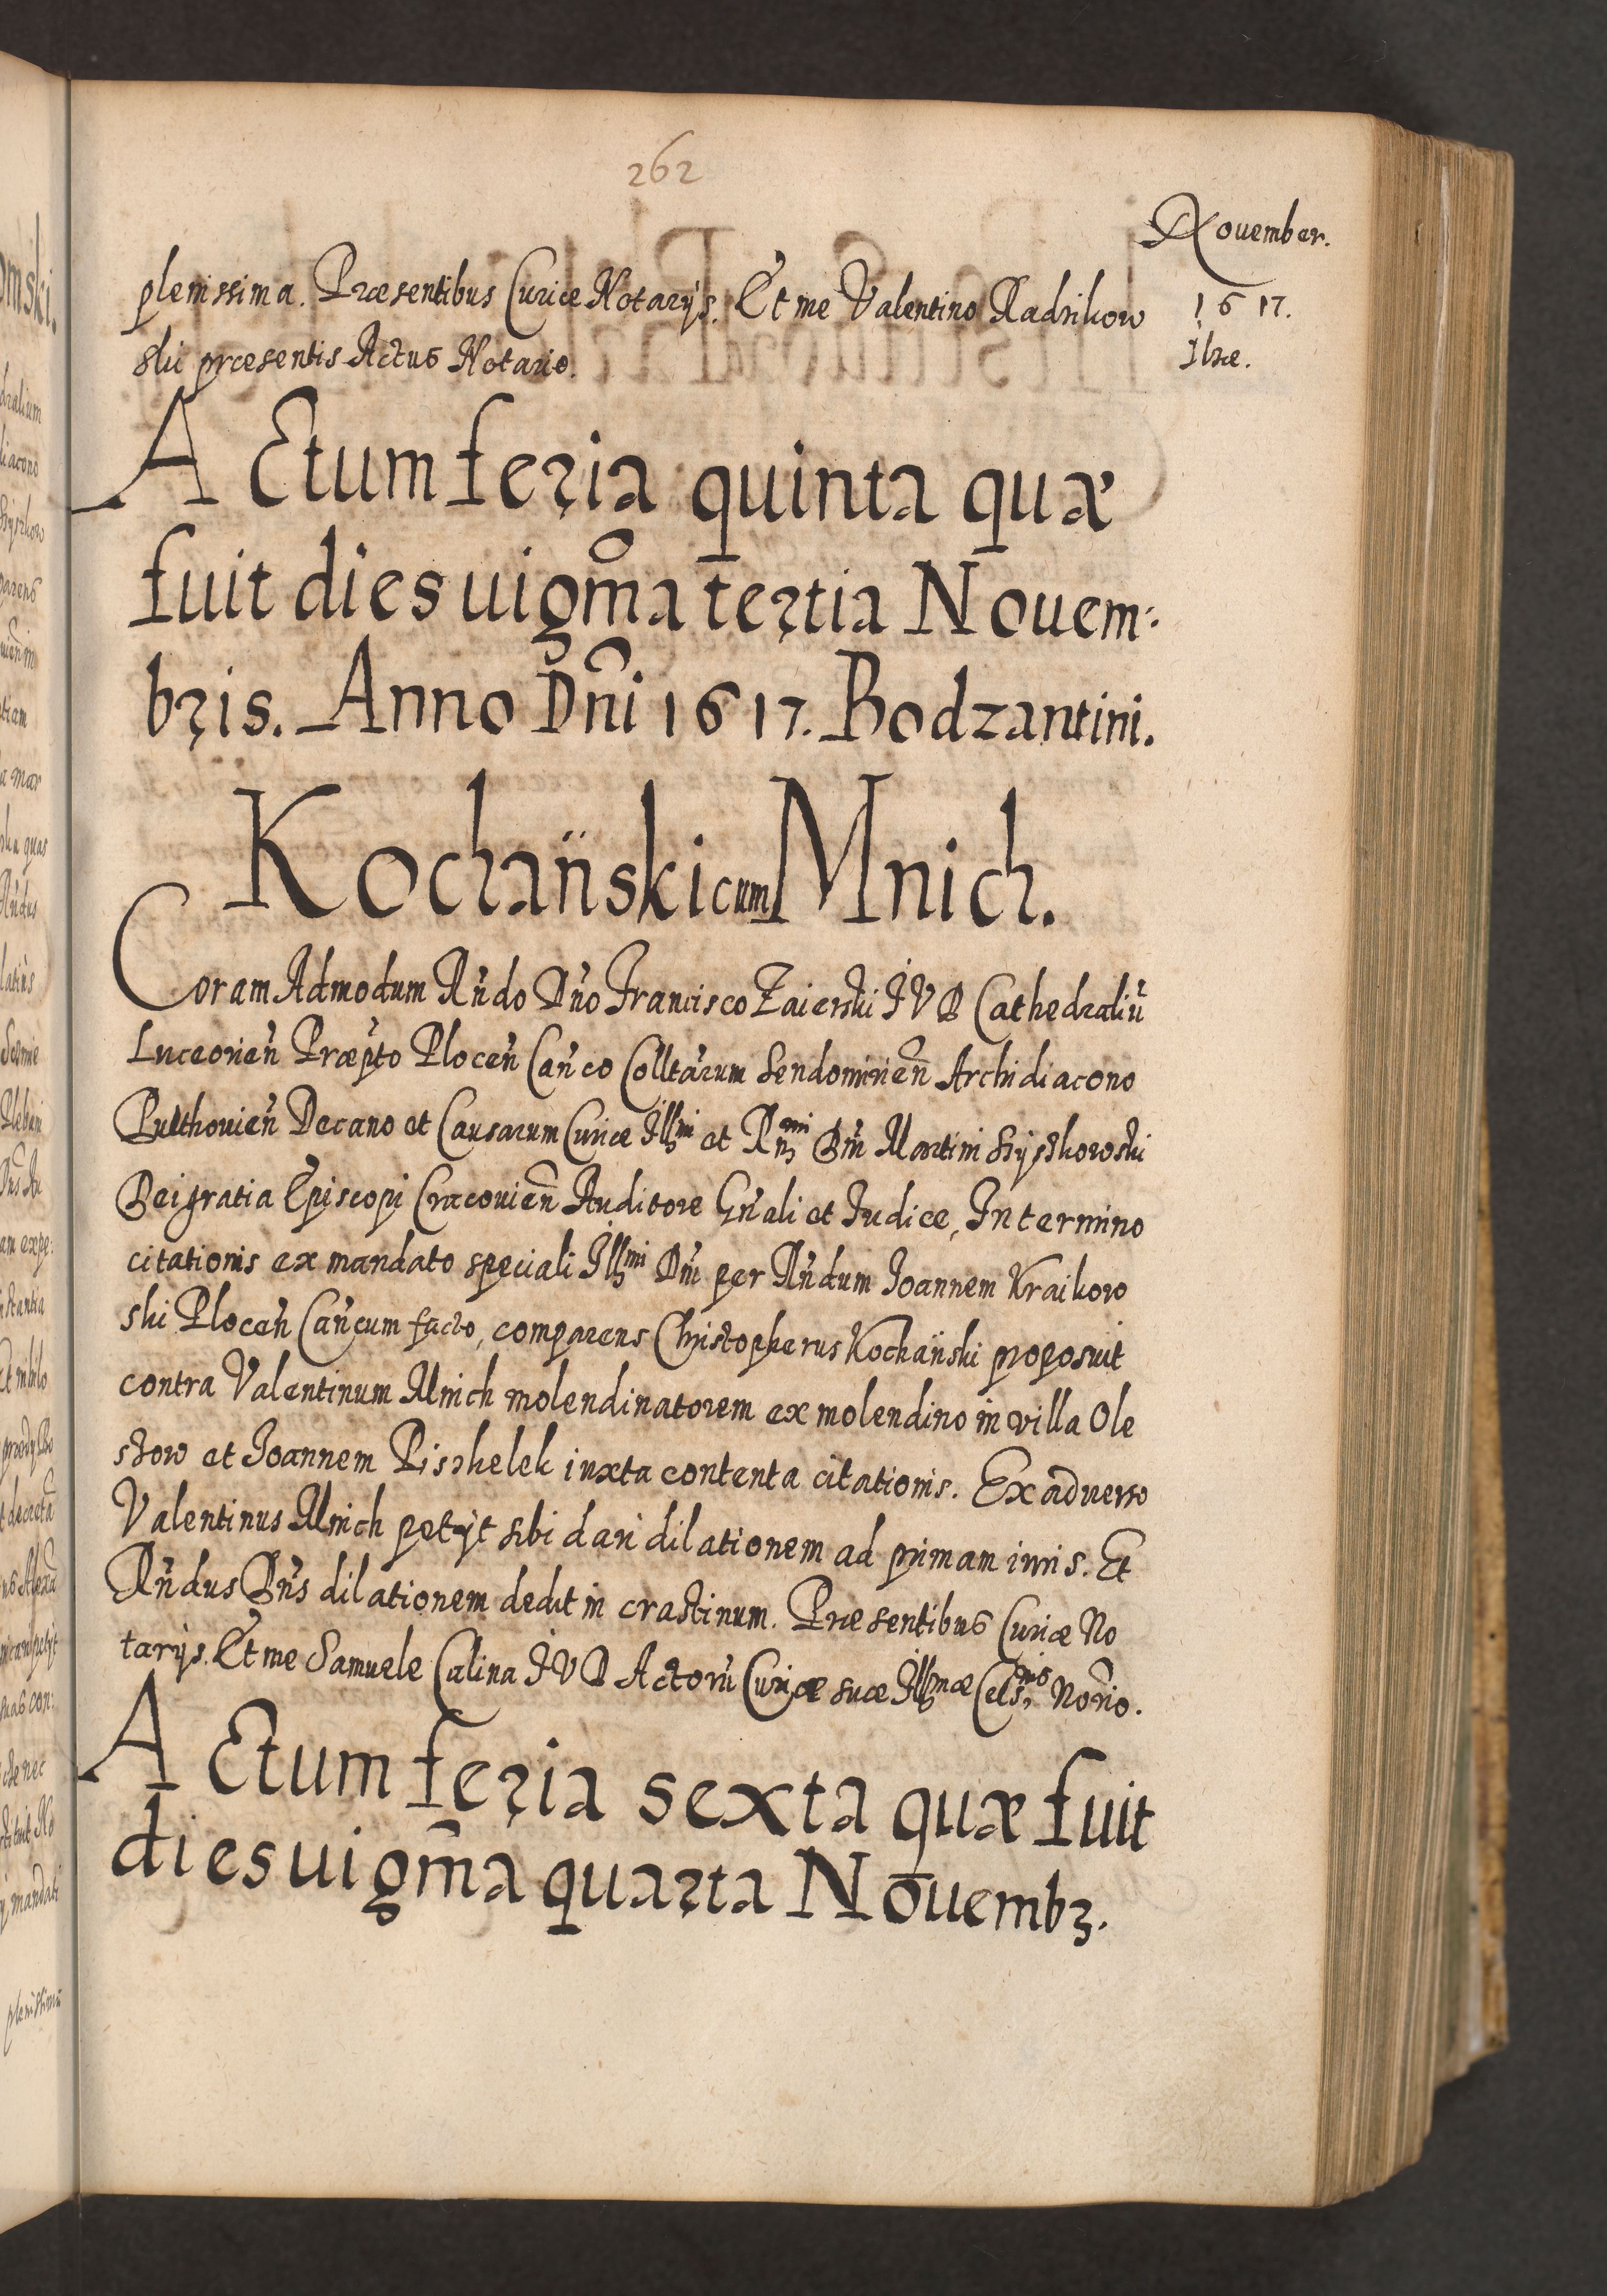 262
Nouember.
1617.
Ilzæ.
plenissima. Præsentibus Curiæ Notarijs. Et me Valentino Radzikow
ski præsentis Actus Notario.
Actum feria quinta quæ
fuit dies uigm̃a tertia Nouem:
bris. Anno Dñi 1617. Bodzantini.
Kochański cum Mnich.
Coram Admodum Rñdo Dño Francisco Zaierski IVD Cathedraliũ
Luceorieñ Præpto Ploceñ Cañco Colltarum Sendomirieñ Archidiacono
Pulthouieñ Decano et Causarum Curiæ Illmi et Rmi Dñi Martini Szyszkowski
Dei gratia Episcopi Cracouieñ Auditore Gñali et Iudice, In termino
citationis ex mandato speciali Illmi Dñi per Rñdum Ioannem Kraikow
ski Ploceñ Cañcum facto, comparens Christopherus Kochański proposuit
contra Valentinum Mnich molendinatorem ex molendino in villa Ole
szow et Ioannem Piszkelek iuxta contenta citationis. Ex aduerso
Valentinus Mnich petijt sibi dari dilationem ad primam iuris. Et
Rñdus Dñs dilationem dedit in crastinum. Præsentibus Curiæ No
tarijs. Et me Samuele Calina IVD Actorũ Curiæ suæ Illmæ Celsnis Norio.
Actum feria sexta quæ fuit
dies uigm̃a quarta Nouemb3.